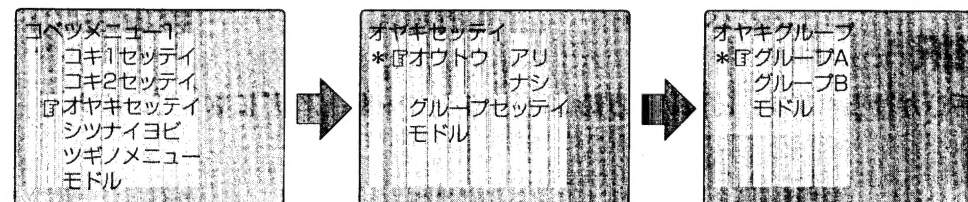 コベツメニュー1
コキ1セッテイ
コキ2セッテイ
☞オヤキセッテイ
シツナイヨビ
ツギノメニュー
モドル
オヤキセッテイ
*☞オウトウ アリ
ナシ
グループセッテイ
モドル
オヤキグループ
*☞グループA
グループB
モドル